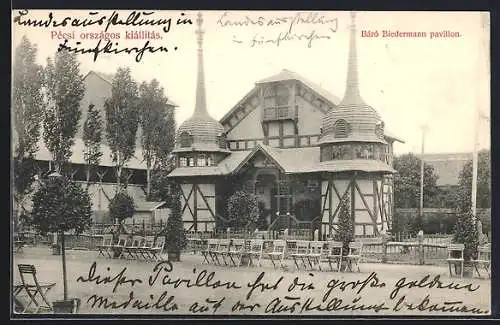 Landes-ausstellung in
Fünfkirchen.
Pécsi országos kiállítás.
Landes-ausstellung
in Fünfkirchen.
Báró Biedermann pavillon.
Dieser Pavillon hat die große goldene
Medaille auf der Ausstellung bekommen.